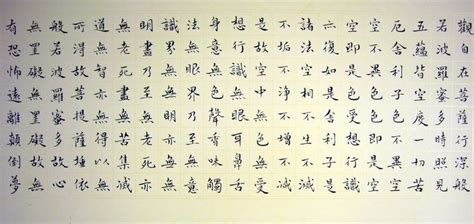 觀自在菩薩行深般
若波羅蜜多時照見
五蘊皆空度一切苦
厄舍利子色不異空
空不異色色即是空
空即是色受想行識
亦復如是舍利子是
諸法空相不生不滅
不垢不淨不增不減
是故空中無色無受
想行識無眼耳鼻舌
身意無色聲香味觸
法無眼界乃至無意
識界無無明亦無無
明盡乃至無老死亦
無老死盡無苦集滅
道無智亦無得以無
所得故菩提薩埵依
般若波羅蜜多故心
無罣礙無罣礙故無
有恐怖遠離顛倒夢